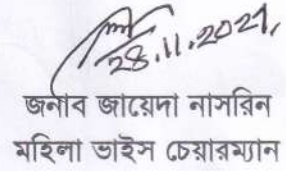 28.11.2021,
জনাব জায়েদা নাসরিন
মহিলা ভাইস চেয়ারম্যান